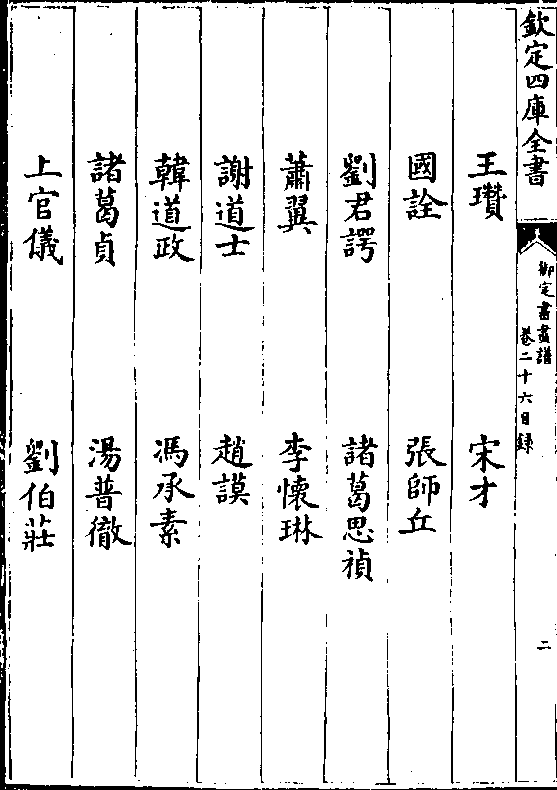 欽定四庫全書
御定書畫譜
卷二十六目錄
二
王瓚 宋才
國詮 張師丘
劉君諤 諸葛思禎
蕭翼 李懷琳
謝道士 趙謨
韓道政 馮承素
諸葛貞 湯普徹
上官儀 劉伯莊